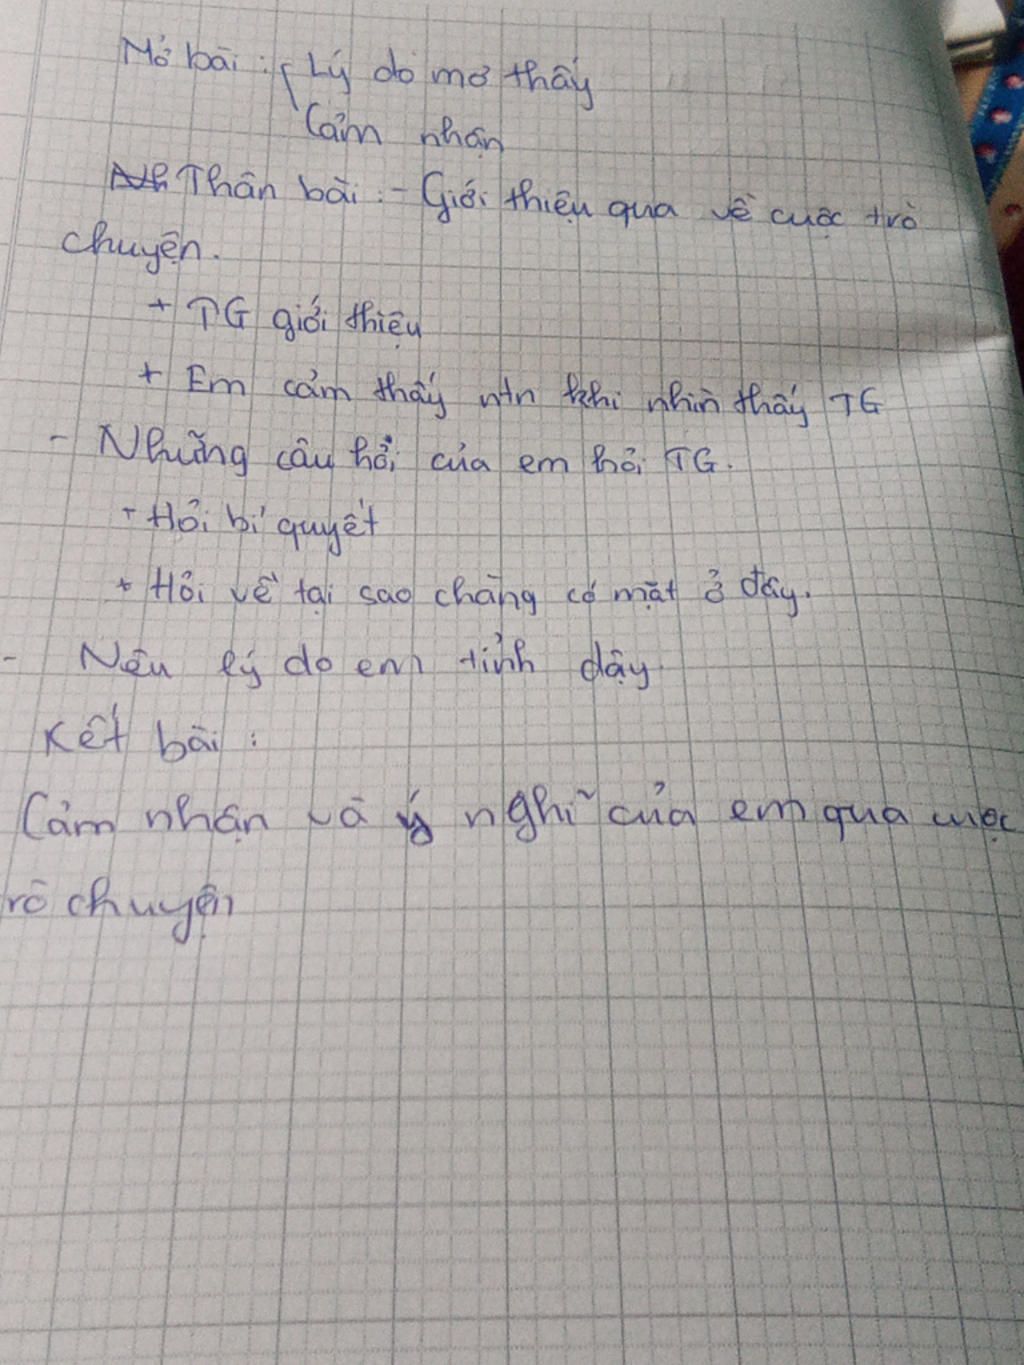 Mở bài : { Lý do mơ thấy
Cảm nhận
Thân bài : - Giới thiệu qua về cuộc trò
chuyện.
+ TG giới thiệu
+ Em cảm thấy ntn khi nhìn thấy TG
- Những câu hỏi của em hỏi TG.
+ Hỏi bí quyết
+ Hỏi về tại sao chàng có mặt ở đây.
- Nêu lý do em tỉnh dậy.
Kết bài :
Cảm nhận và ý nghĩ của em qua cuộc
rò chuyện